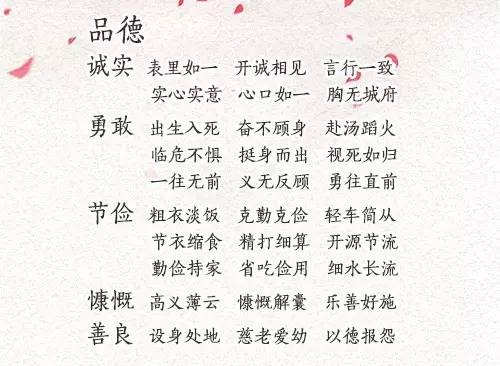 品德
诚实 表里如一 开诚相见 言行一致
实心实意 心口如一 胸无城府
勇敢 出生入死 奋不顾身 赴汤蹈火
临危不惧 挺身而出 视死如归
一往无前 义无反顾 勇往直前
节俭 粗衣淡饭 克勤克俭 轻车简从
节衣缩食 精打细算 开源节流
勤俭持家 省吃俭用 细水长流
慷慨 高义薄云 慷慨解囊 乐善好施
善良 设身处地 慈老爱幼 以德报怨